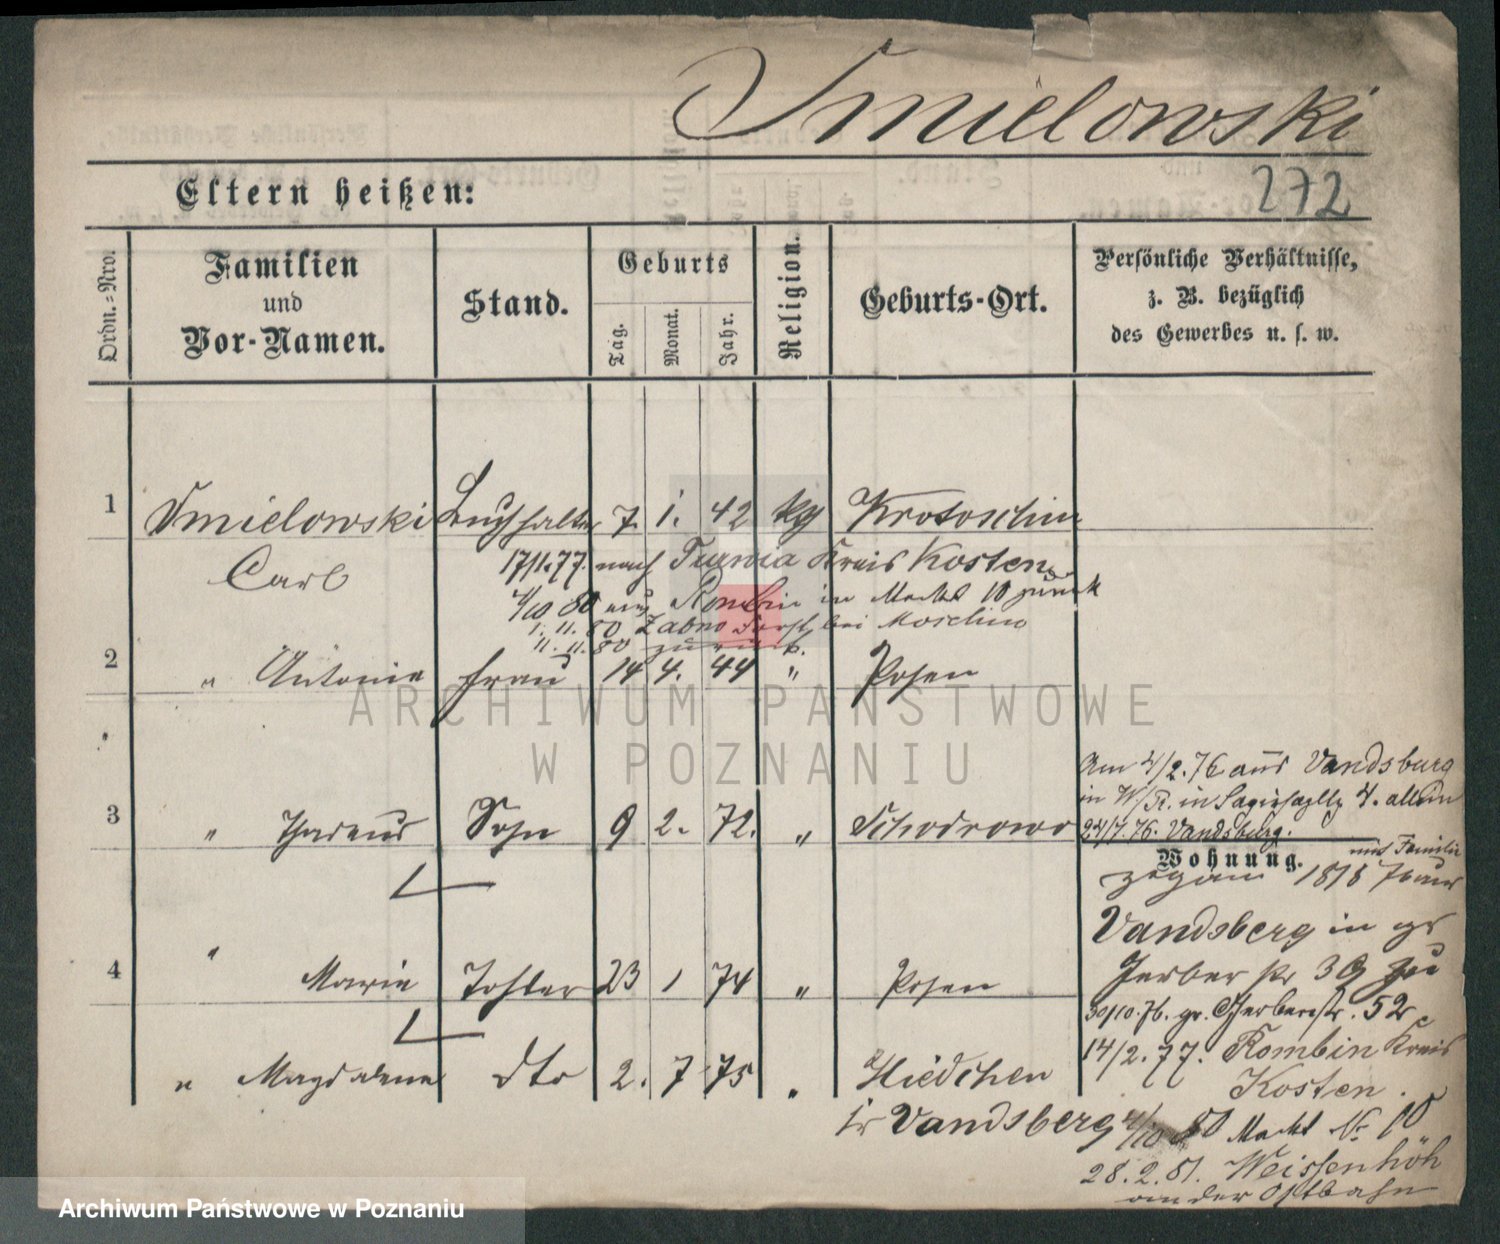 Smielowski
Eltern heißen:
272
Ordn.-Nro.
Familien
und
Vor-Namen.
Stand.
Geburts
Tag.
Monat.
Jahr.
Religion.
Geburts-Ort.
Persönliche Verhältnisse,
z. B. bezüglich
des Gewerbes u. s. w.
1 Smielowski Buchhalter 7. 1. 42 kg Krotoschin
Carl
17/1.77. nach Turwia Kreis Kosten
4/10 80 aus Rombin in Markt 10 zurück
1. 11. 80 Zabno Forst bei Moschin
11. 11. 80 zurück.
2 " Antonie Frau 14 4. 44 " Posen
ARCHIWUM PAŃSTWOWE
W POZNANIU
Am 4/2.76 aus Vandsburg
in W/Pr. in 4. allein
24/7.76. Vandsburg.
3 " Thadeus Sohn 9 2. 72. "
Wohnung.
mit Familie
1876 aus
Vandsberg in gr
Gerber str 39 zu
4 " Marie Tochter 23 1 74 " Posen
30/10.76. gr. Gerberstr. 52
14/2.77. Rombin Kreis
Kosten.
" Magdalena dto 2. 7 75 "
Kr Vandsberg
4/10 80 Markt Nr 10
28.2.81. Weissenhöh
an der Ostbahn
Archiwum Państwowe w Poznaniu